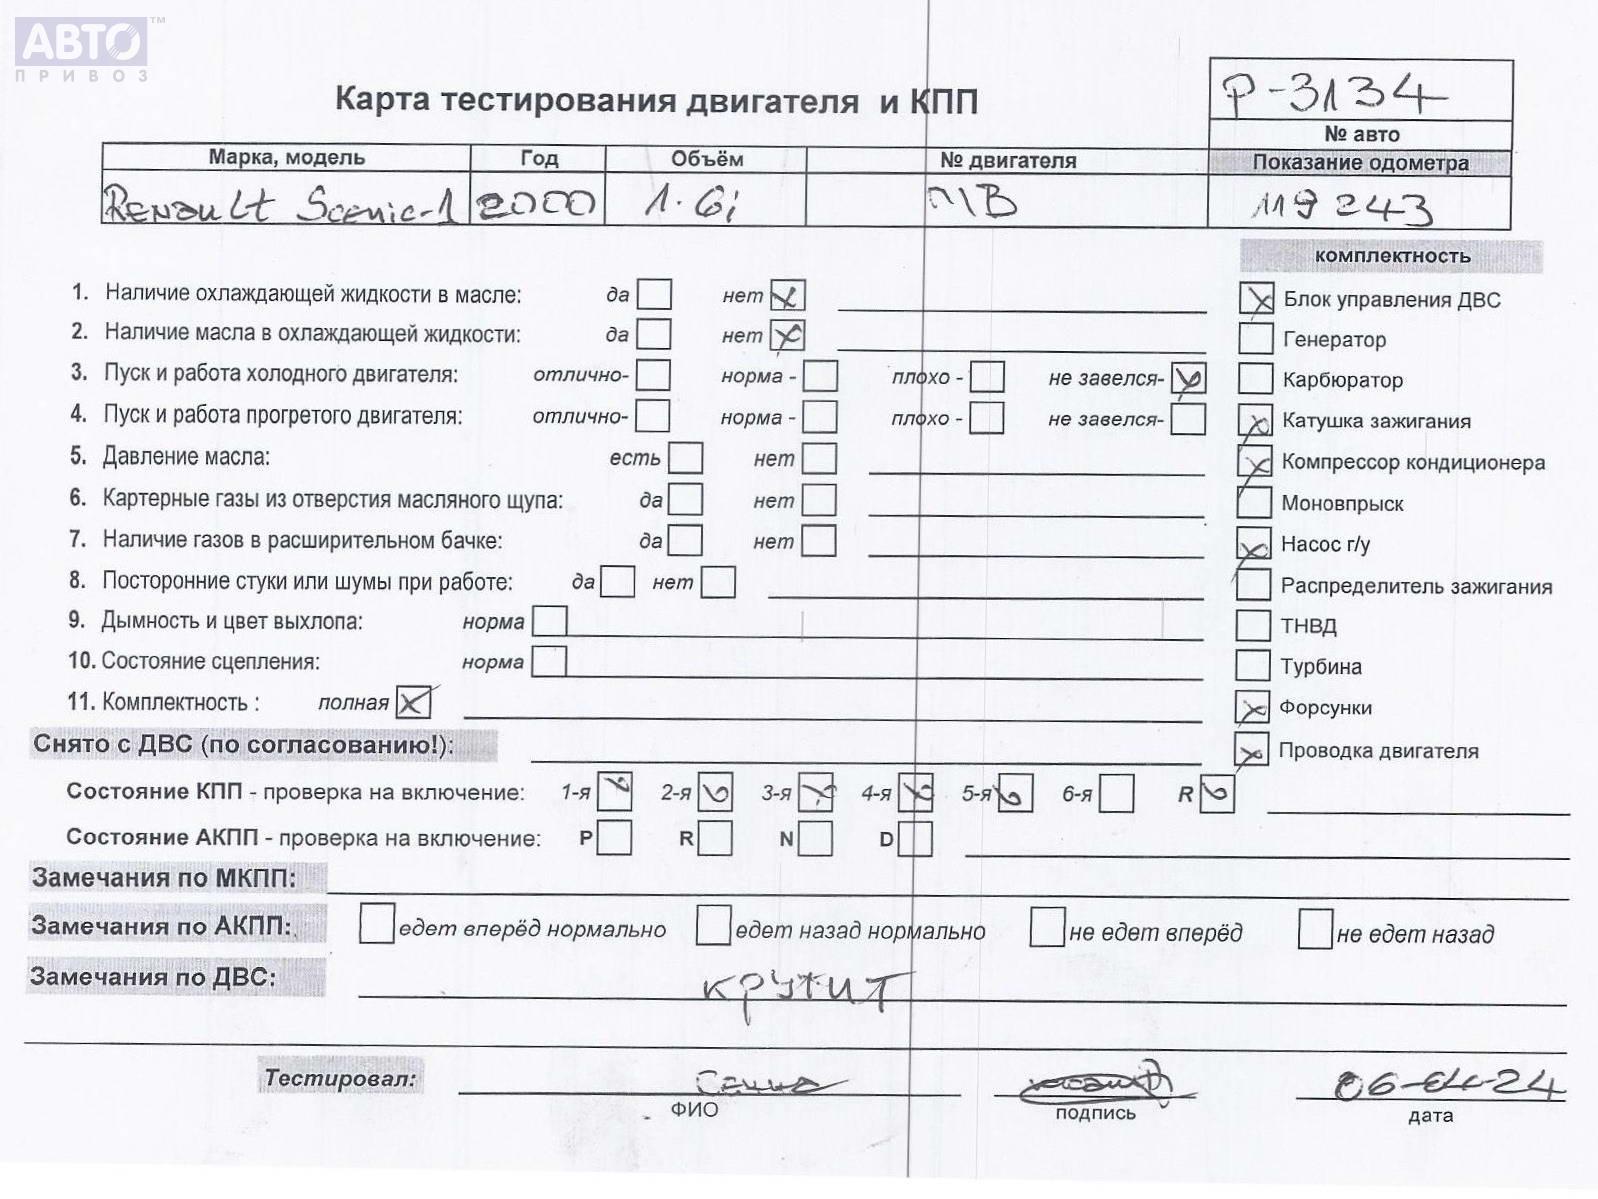 АВТО™
ПРИВОЗ
Карта тестирования двигателя и КПП
P-3134
№ авто
Марка, модель Год Объём № двигателя Показание одометра
Renault Scenic-1 2000 1.6i 119243
комплектность
1. Наличие охлаждающей жидкости в масле: да нет
Блок управления ДВС
2. Наличие масла в охлаждающей жидкости: да нет
Генератор
3. Пуск и работа холодного двигателя: отлично- норма - плохо - не завелся-
Карбюратор
4. Пуск и работа прогретого двигателя: отлично- норма - плохо - не завелся-
Катушка зажигания
5. Давление масла: есть нет
Компрессор кондиционера
6. Картерные газы из отверстия масляного щупа: да нет
Моновпрыск
7. Наличие газов в расширительном бачке: да нет
Насос г/у
8. Посторонние стуки или шумы при работе: да нет
Распределитель зажигания
9. Дымность и цвет выхлопа: норма
ТНВД
10. Состояние сцепления: норма
Турбина
11. Комплектность : полная
Форсунки
Снято с ДВС (по согласованию!):
Проводка двигателя
Состояние КПП - проверка на включение: 1-я 2-я 3-я 4-я 5-я 6-я R
Состояние АКПП - проверка на включение: P R N D
Замечания по МКПП:
Замечания по АКПП: едет вперёд нормально едет назад нормально не едет вперёд не едет назад
Замечания по ДВС: крутит
Тестировал:
ФИО подпись дата